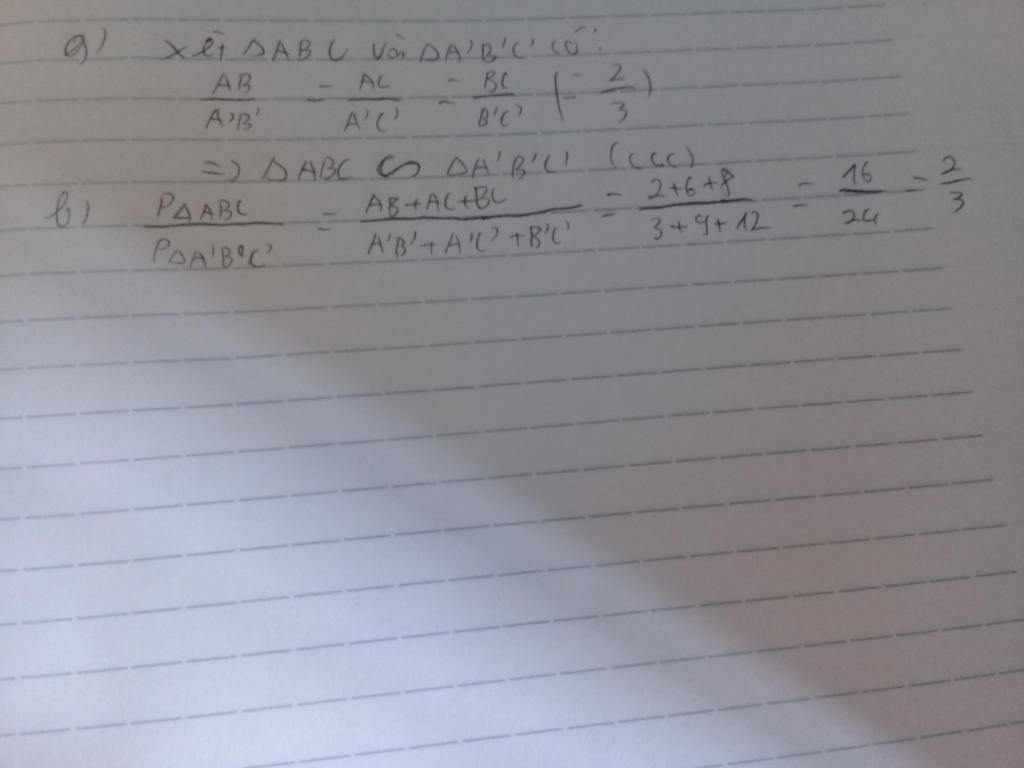 a) Xét ΔABC và ΔA'B'C' có:
AB/A'B' = AC/A'C' = BC/B'C' (= 2/3)
=> ΔABC ∽ ΔA'B'C' (ccc)
b) PΔABC/PΔA'B'C' = AB+AC+BC/A'B'+A'C'+B'C' = 2+6+8/3+9+12 = 16/24 = 2/3